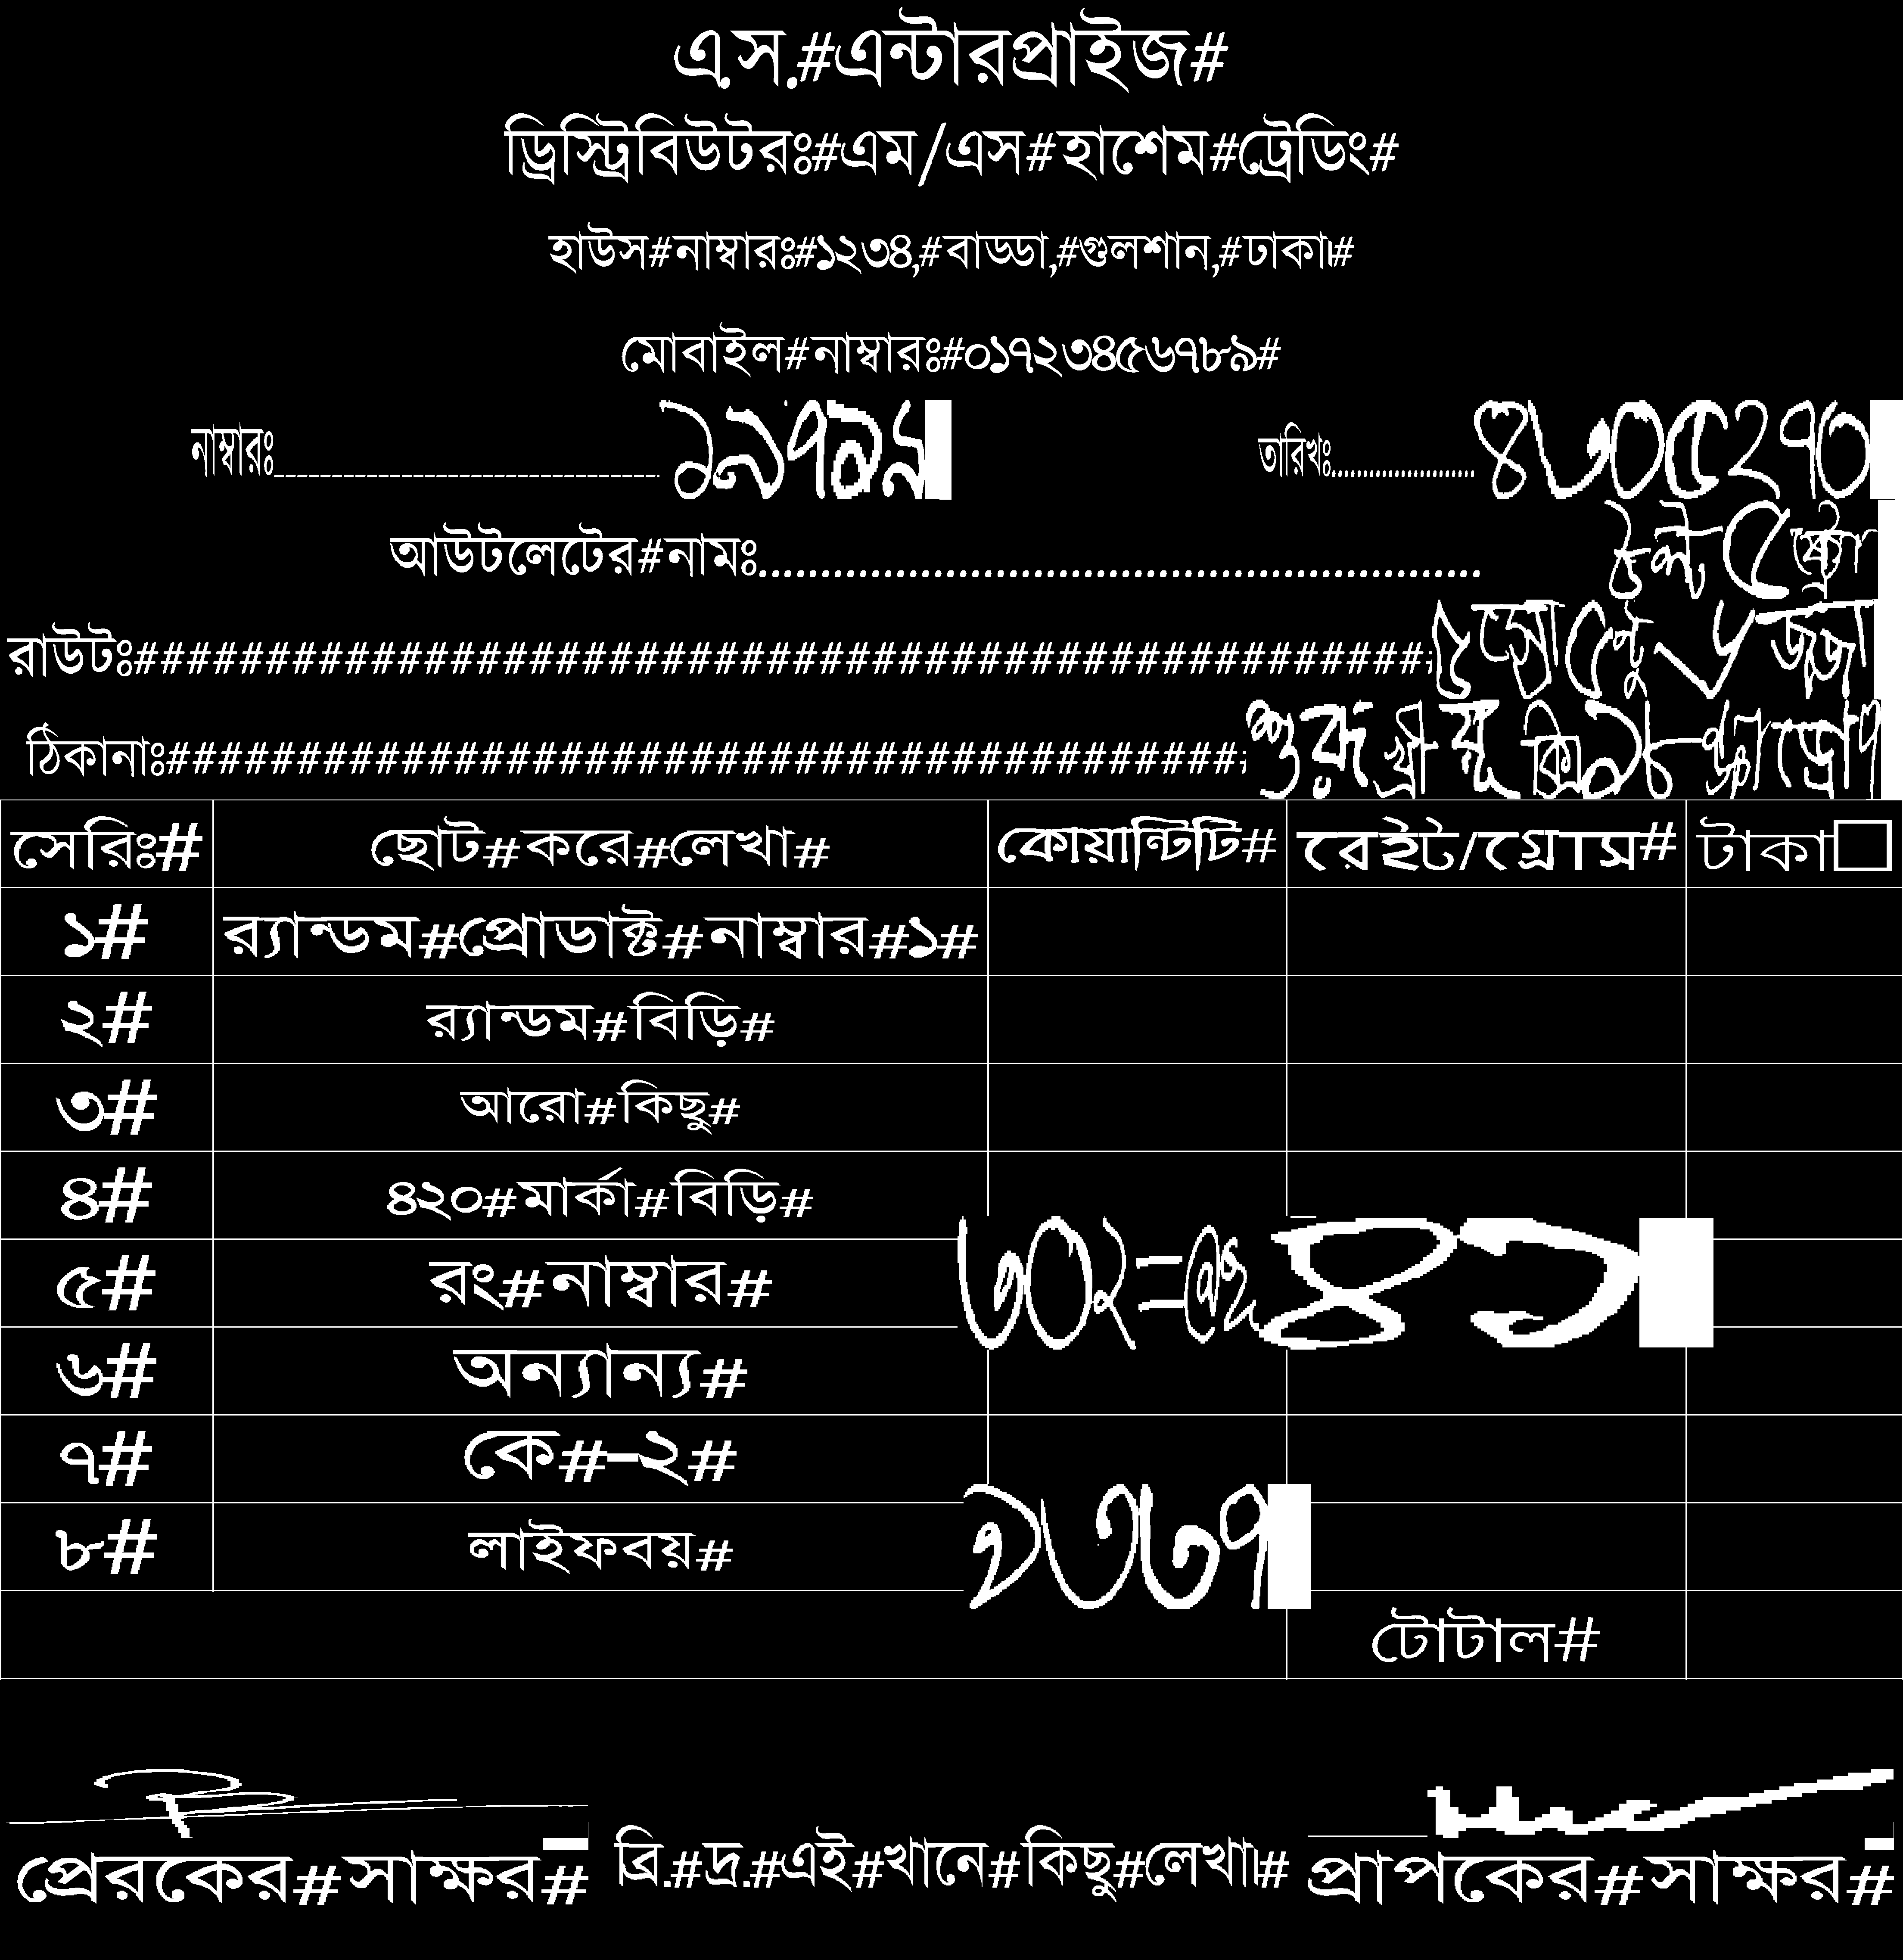 এ.স.#এন্টারপ্রাইজ#
ড্রিস্ট্রিবিউটরঃ#এম/এস#হাশেম#ট্রেডিং#
হাউস#নাম্বারঃ#১২৩৪,#বাড্ডা,#গুলশান,#ঢাকা।#
মোবাইল#নাম্বারঃ#০১৭২৩৪৫৬৭৮৯#
নাম্বারঃ................................ ১৯৭১৯ তারিখঃ....................... ৪৩০৫২৭০
আউটলেটের#নামঃ............................................................
রাউটঃ##################################################
ঠিকানাঃ##########################################
সেরিঃ# ছোট#করে#লেখা# কোয়ান্টিটি# রেইট/গ্রোস# টাকা
১# র‍্যান্ডম#প্রোডাক্ট#নাম্বার#১#
২# র‍্যান্ডম#বিড়ি#
৩# আরো#কিছু#
৪# ৪২০#মার্কা#বিড়ি#
৫# রং#নাম্বার# ৩০২= ৪১
৬# অন্যান্য#
৭# কে#-২#
৮# লাইফবয়# ২৩৩৭
টোটাল#
প্রেরকের#সাক্ষর# ব্রি.#দ্র.#এই#খানে#কিছু#লেখা।# প্রাপকের#সাক্ষর#